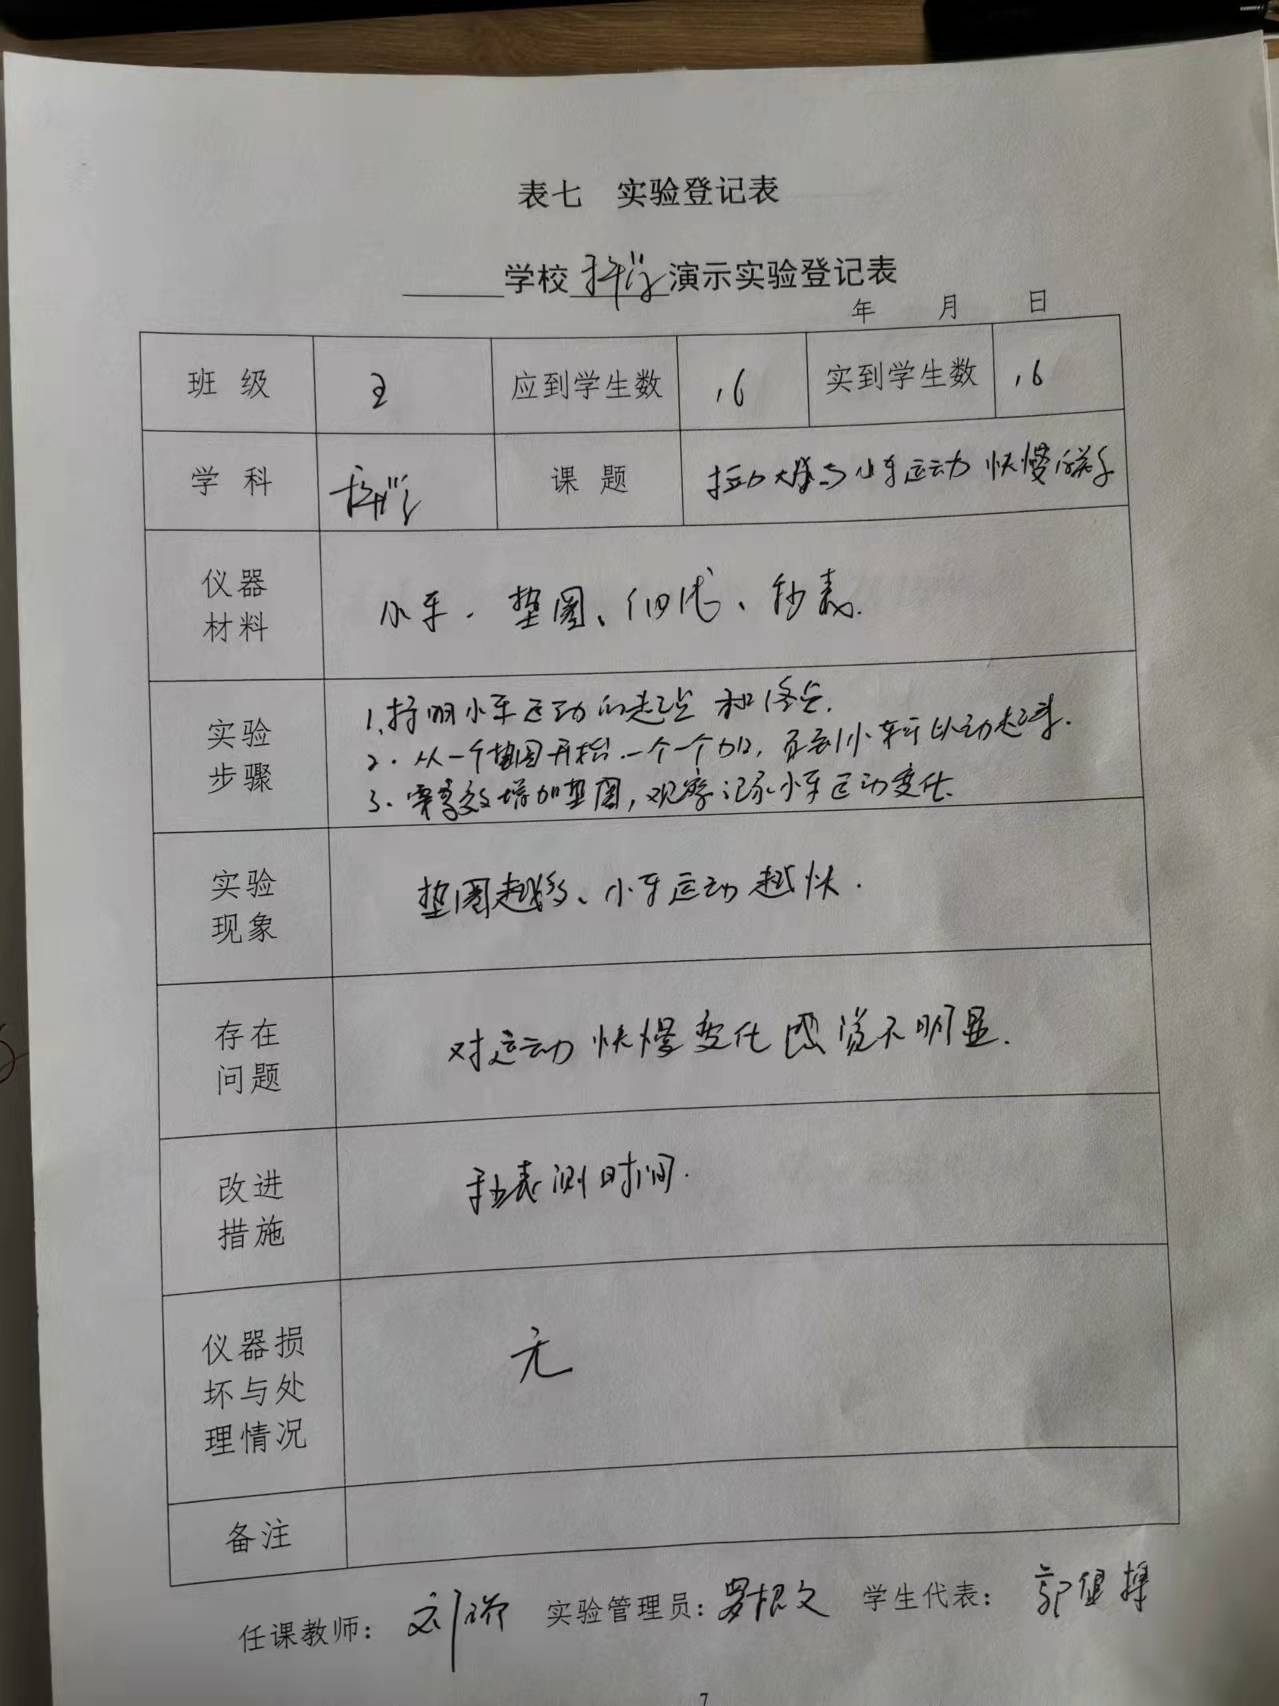 表七 实验登记表
学校 科学 演示实验登记表
年 月 日
班 级 应到学生数 16 实到学生数 16
学 科 科学 课 题 拉力大小与小车运动快慢的关系
仪器
材料
小车、垫圈、 、秒表.
实验
步骤
1. 小车运动的起点和终点.
2. 从一个垫圈开始.一个一个加,直到小车可以动起来.
3. 等数增加垫圈,观察记录小车运动变化.
实验
现象
垫圈越多、小车运动越快.
存在
问题
对运动快慢变化感觉不明显.
改进
措施
秒表测时间.
仪器损
坏与处
理情况
无
备注
任课教师: 实验管理员: 罗根文 学生代表:
7